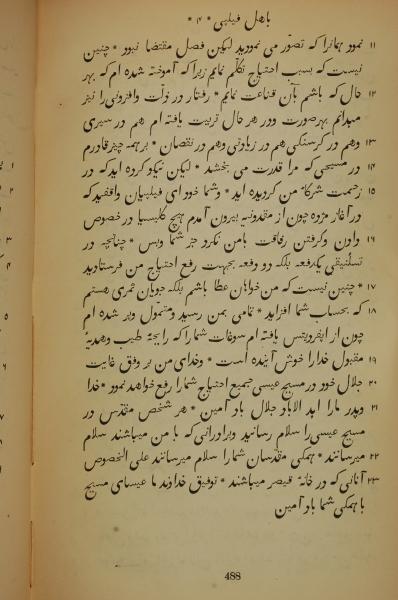 باهل فیلپی * ۴ *
۱۱ نمود همانرا که تصور می نمودید لیکن فصل مقتضا نبود * چنین
نیست که بسبب احتیاج تکلّم نمایم زیرا که آموخته شده ام که بهر
۱۲ حال که باشم بآن قناعت نمایم * رفتار در ذلّت و افزونی را نیز
میدانم بهر صورت و در هر حال تربیت یافته ام هم در سیری
۱۳ و هم در گرسنگی هم در زیادتی و هم در نقصان * بر همه چیز قادرم
۱۴ در مسیحی که مرا قدرت می بخشد * لیکن نیکو کرده اید که در
۱۵ زحمت شرکاء من گردیده اید * و شما خود ای فیلپیان واقفید که
در آغاز مژده چون از مقدونیه بیرون آمدم هیچ کلیسیا در خصوص
۱۶ دادن و گرفتن رفاقت بامن نکرد جز شما و بس * چنانچه در
تسلنیقی یکدفعه بلکه دو دفعه بجهت رفع احتیاج من فرستادید
۱۷ * چنین نیست که من خواهان عطا باشم بلکه جویان ثمری هستم
۱۸ که بحساب شما افزاید * تمامی بمن رسید و متمول و پر شده ام
چون از اپفرودیتس یافته ام سوغات شما را که رایحهٔ طیب و هدیهٔ
۱۹ مقبول خدا را خوش آینده است * و خدای من بر وفق غایت
۲۰ جلال خود در مسیح عیسی جمیع احتیاج شما را رفع خواهد نمود * خدا
۲۱ و پدر ما را ابد الاباد جلال باد آمین * هر شخص مقدّس در
مسیح عیسی را سلام رسانید و برادرانی که با من میباشند سلام
۲۲ میرسانند * همگی مقدسان شما را سلام میرسانند علی الخصوص
۲۳ آنانی که در خانهٔ قیصر میباشند * توفیق خداوند ما عیسای مسیح
با همگی شما باد آمین
488